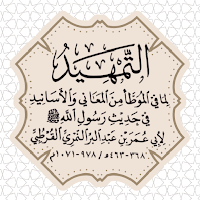 التَّمْهِيدُ
لِمَا فِي المُوَطَّأ مِنَ المَعَانِي وَالأَسَانِيدِ
فِي حَدِيثِ رَسُولِ اللهِ ﷺ
لِأَبِي عُمَرَ بْنِ عَبْدِ البَرِّ النَّمَرِيِّ القُرْطُبِيِّ
٣٦٨-٤٦٣هـ / ٩٧٨-١٠٧١م